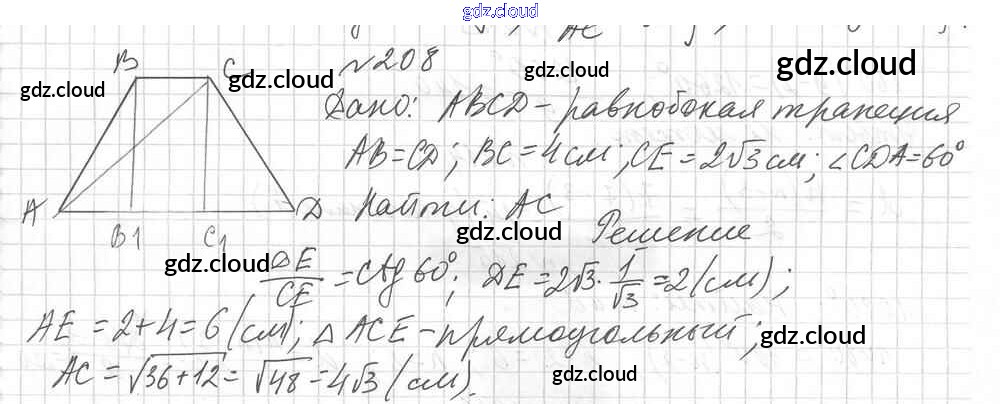 gdz.cloud
AC
№208
gdz.cloud
B C gdz.cloud
gdz.cloud gdz.cloud
Дано: ABCD – равнобокая трапеция
gdz.cloud
AB=CD; BC=4см; CE=2√3см; ∠CDA=60°
A D
B1 C1
Найти: AC
gdz.cloud
Решение
gdz.cloud
DE/CE = ctg 60°; DE=2√3·1/√3=2(см);
AE=2+4=6(см); △ACE–прямоугольный;
gdz.cloud
AC=√36+12=√48=4√3(см).
gdz.cloud